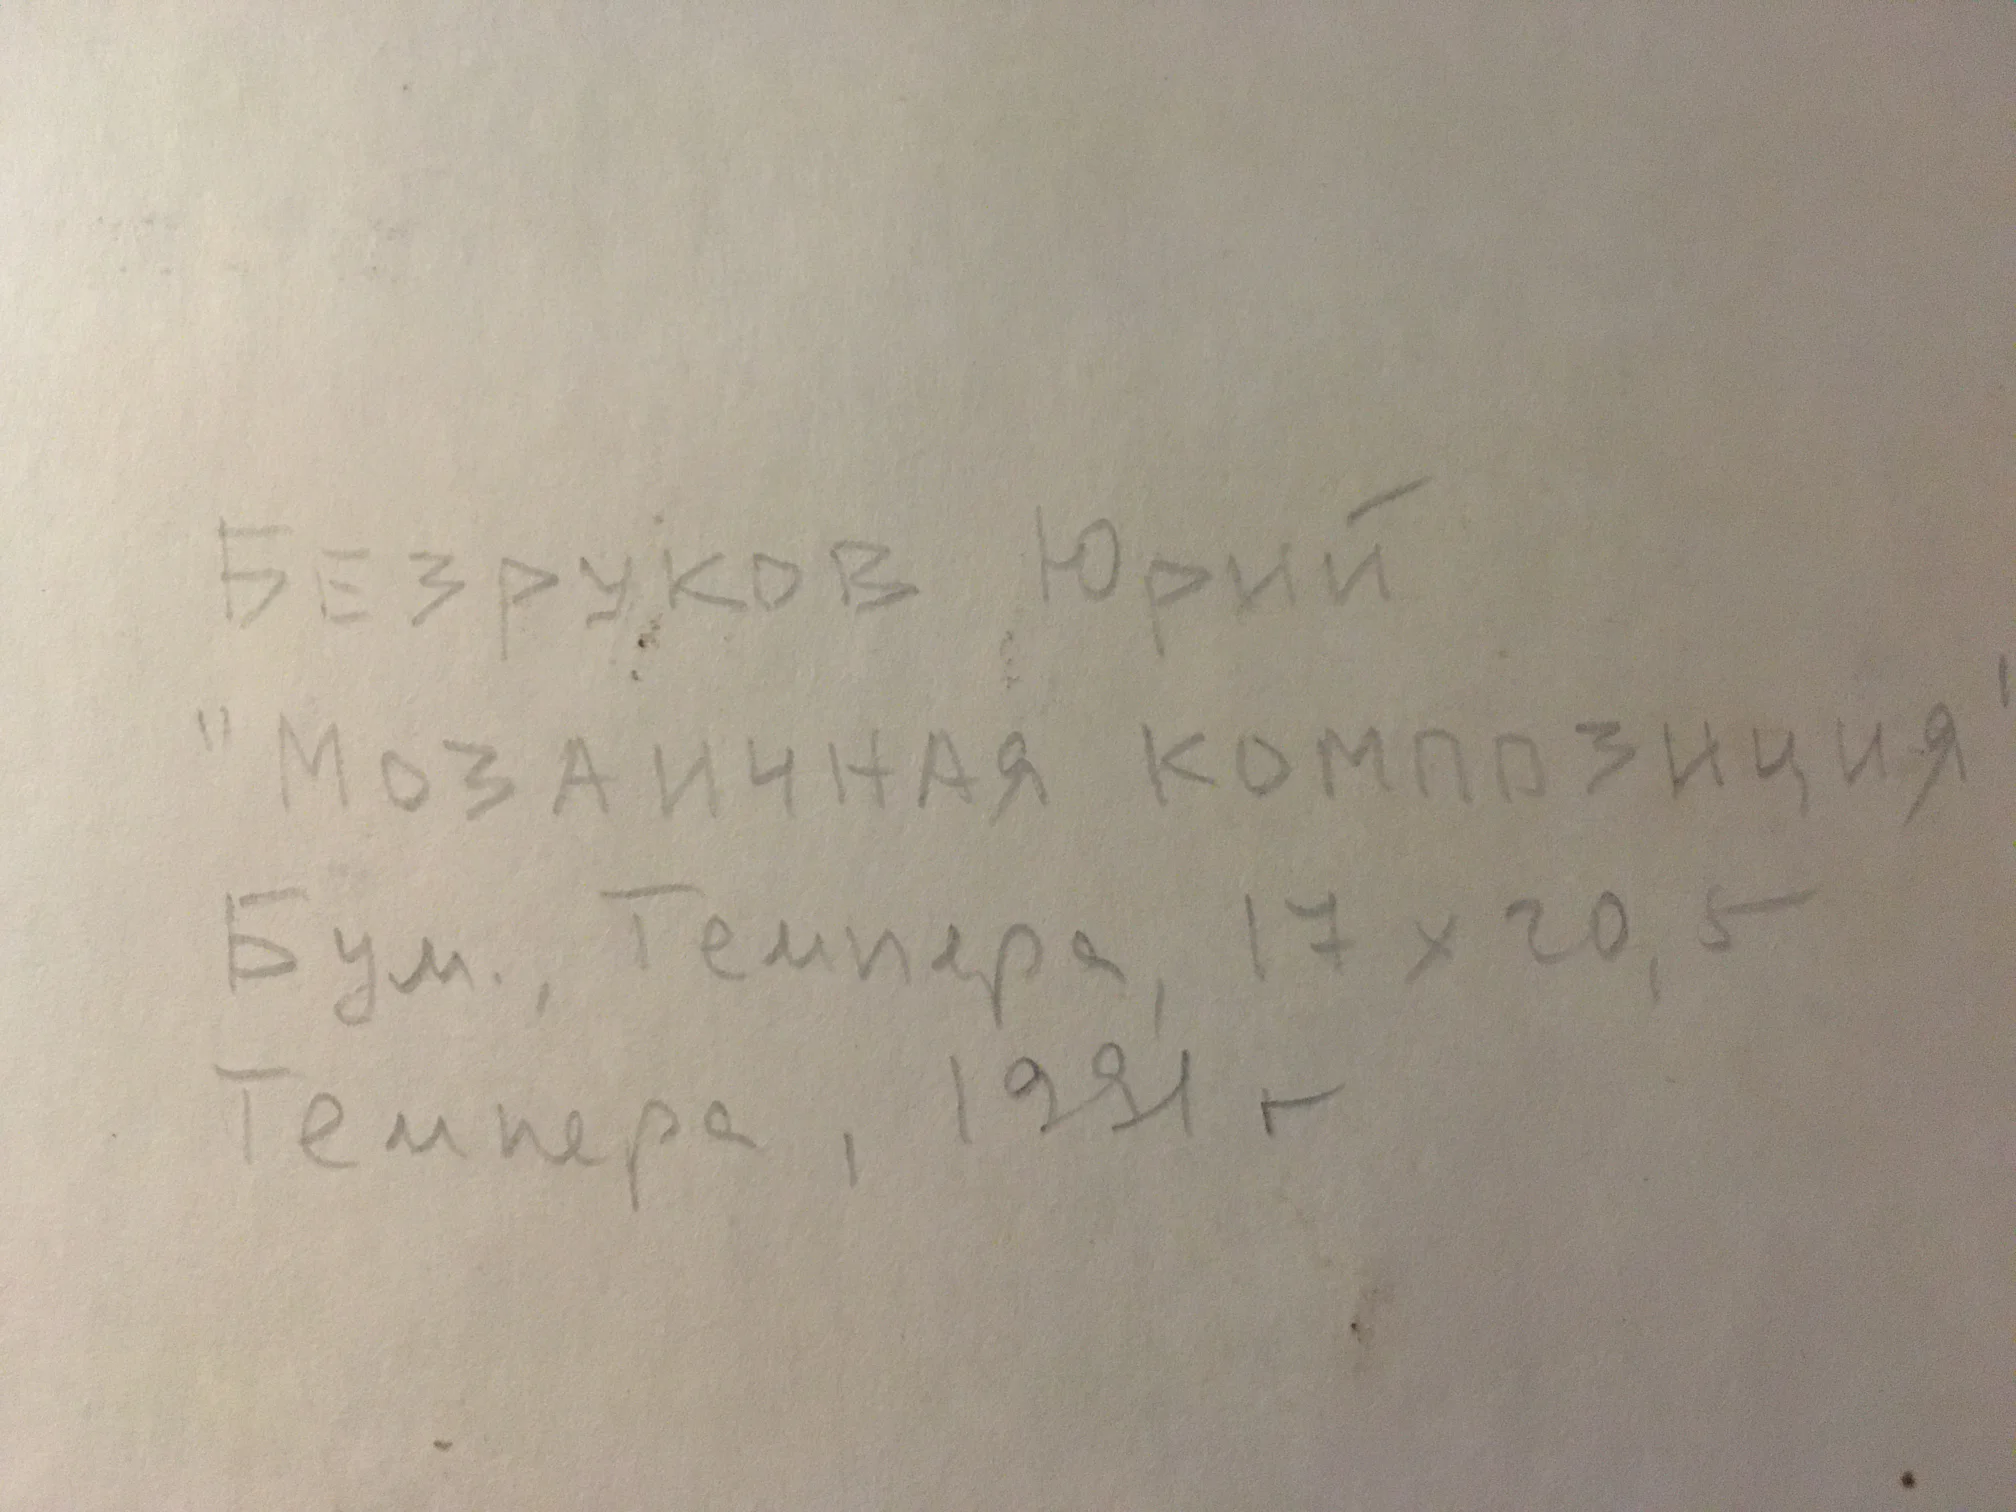 Безруков Юрий
"Мозаичная композиция"
Бум., Темпера, 17 х 20,5
Темпера, 1991 г